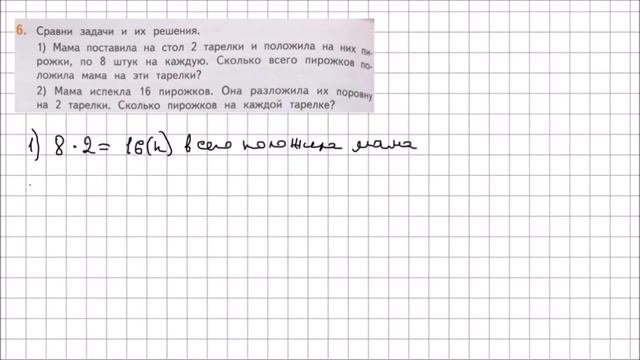 6. Сравни задачи и их решения.
1) Мама поставила на стол 2 тарелки и положила на них пи-
рожки, по 8 штук на каждую. Сколько всего пирожков по-
ложила мама на эти тарелки?
2) Мама испекла 16 пирожков. Она разложила их поровну
на 2 тарелки. Сколько пирожков на каждой тарелке?
1) 8 · 2 = 16 (п) всего положила мама